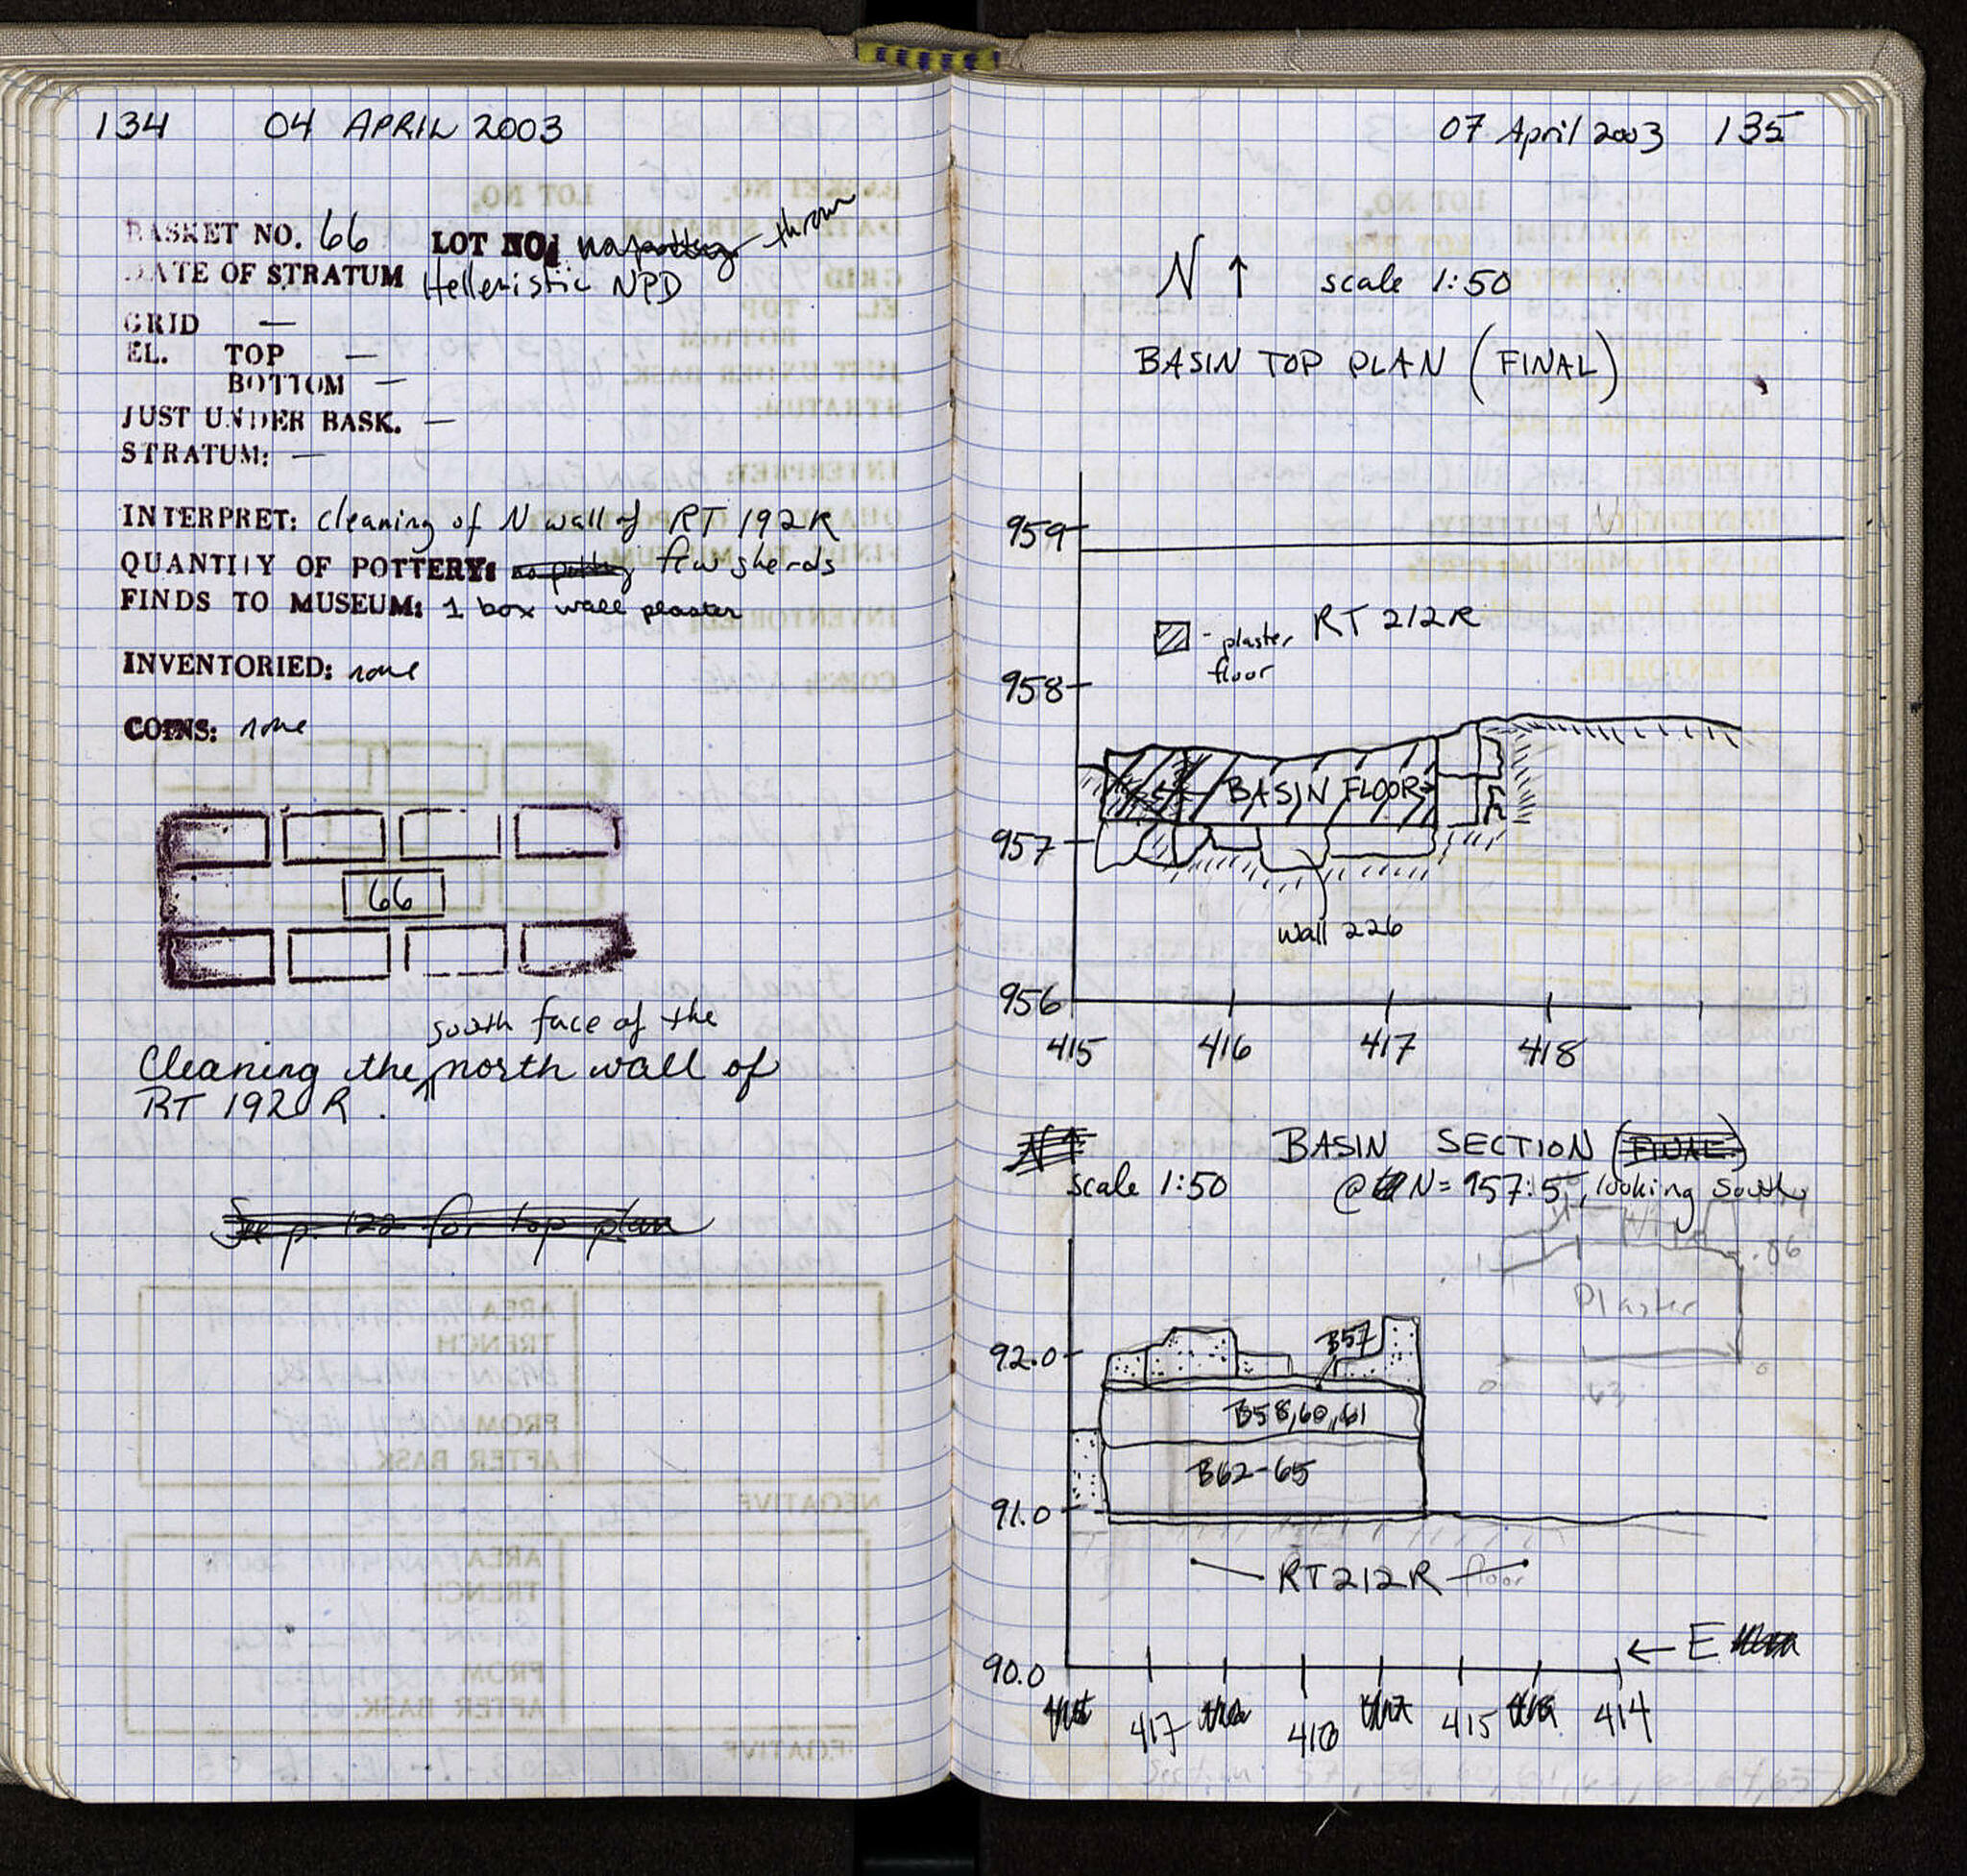 134 04 APRIL 2003
BASKET NO. 66 LOT NO. no pottery throw
DATE OF STRATUM Hellenistic NPD
GRID —
EL. TOP —
BOTTOM —
JUST UNDER BASK. —
STRATUM: —
INTERPRET: cleaning of N wall of RT 192R
QUANTITY OF POTTERY: no pottery few sherds
FINDS TO MUSEUM: 1 box wall plaster
INVENTORIED: none
COINS: none
66
south face of the
Cleaning the north wall of
RT 192R.
See p. 122 for top plan
07 April 2003 135
N ↑ scale 1:50
BASIN TOP PLAN (FINAL)
959
RT 212R
- plaster
floor
958
BASIN FLOOR
957
wall 226
956
415 416 417 418
N↑ BASIN SECTION (FINAL)
scale 1:50 @ N = 957.5, looking South
.86
Plaster
92.0
B57
B58,60,61
B62-65
91.0
RT212R floor
← E
90.0
417 416 415 414